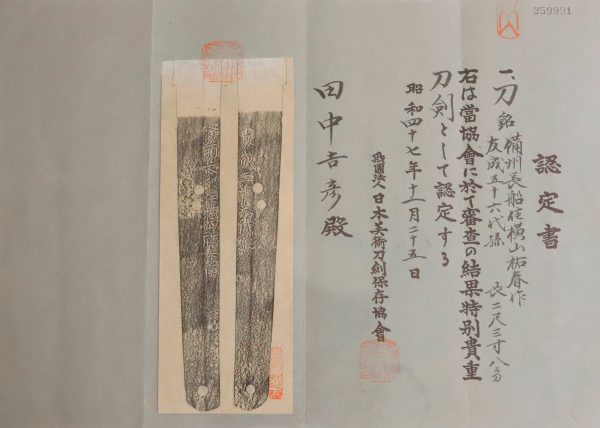 259991
認定書
一、刀 銘 備州長船住横山祐春作
友成五十六代孫
長二尺三寸八分
右は當協會に於て審査の結果特別貴重
刀剣として認定する
昭和四十七年十一月二十五日
財團法人日本美術刀剣保存協會
田中吉彦殿